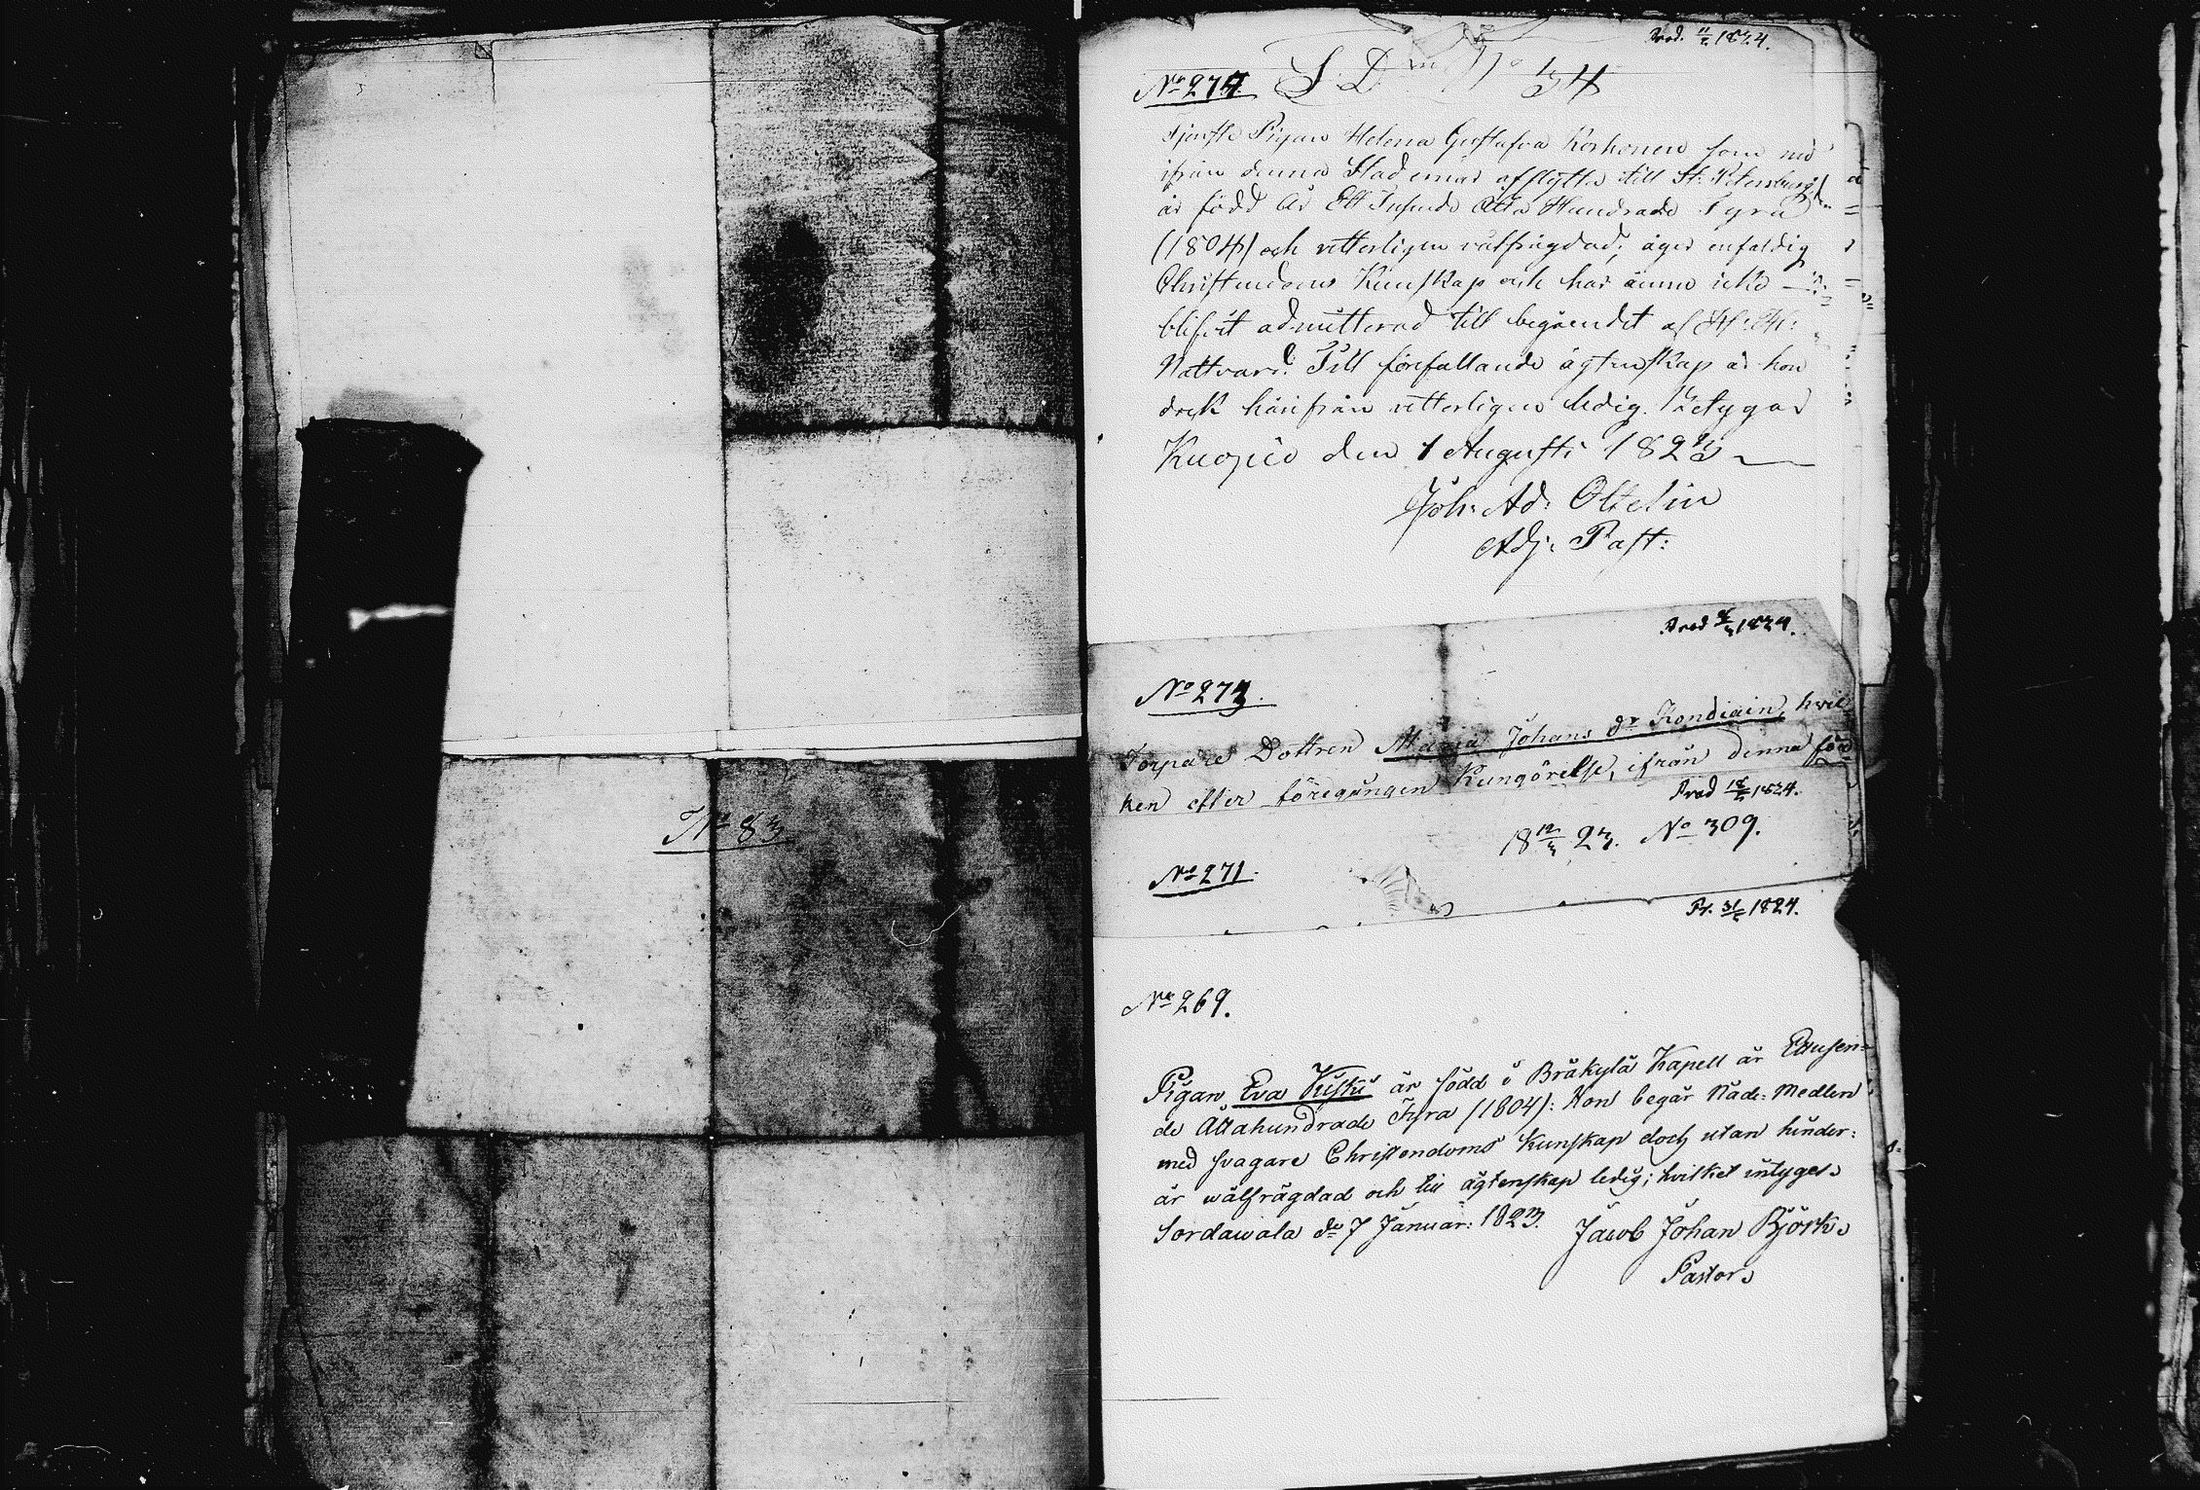 No 83
Prod. 11/2 1824.
No 274. S. D. No 34
Tjenste Pigan Helena Gustafva Korhonen som nu
ifrån denna Stad ernar afflytta till St: Petersburg,
är född År Ett Tusende Åtta Hundrade Fyra
(1804) och vitterligen välfrägdad, äger enfaldig
Christendoms Kunskap och har ännu icke
blifvit admitterad till begåendet af H: H:
Nattvard. Till förefallande ägtenskap är hon
ock härifrån vitterligen ledig. Betygar
Kuopio den 1 Augusti 1823
Joh: Ad: Oltelin
Adj: Past:
Prod 1824.
No 273.
Torpare Dottren Maria Johans dr Kondiain, hvil
ken efter föregången Kungörelse, ifrån denna för
Prod 18/2 1824.
18 12/3 23. No 309.
No 271.
Pr. 31/1 1824.
No 269.
Pigan Eva Kuski är född i Bräkylä Kapell år Ettusen=
de Åttahundrade Fyra (1804): Hon begår Nåde: Medlen
med svagare Christendoms Kunskap doch utan hinder:
är wälfrägdad och till ägtenskap ledig; hvilket intygas
Sordawala de 7 Januar: 1823. Jacob Johan Björk
Pastor